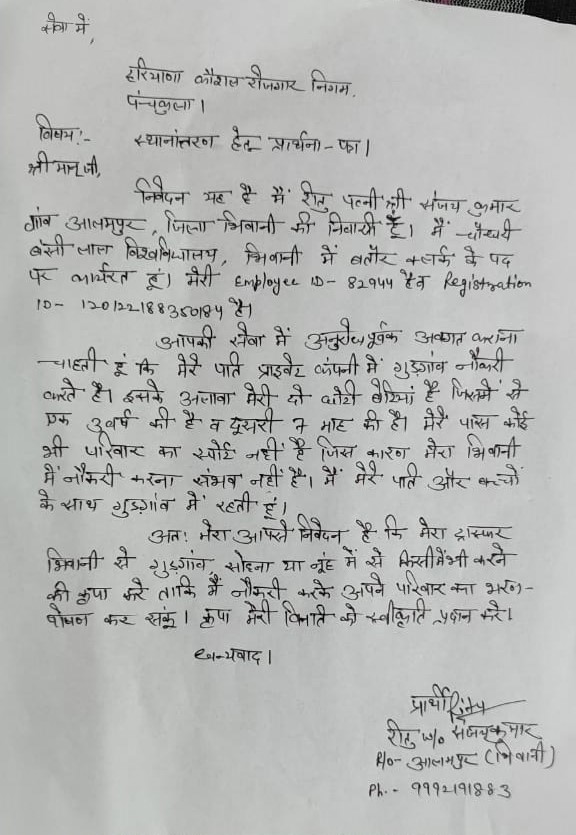 सेवा में,
हरियाणा कौशल रोजगार निगम,
पंचकुला।
विषय:- स्थानांतरण हेतु प्रार्थना-पत्र।
श्री मान् जी,
निवेदन यह है मैं रीतु पत्नी श्री संजय कुमार
गांव आलमपुर, जिला भिवानी की निवासी हूँ। मैं चौधरी
बंसी लाल विश्वविधालय, भिवानी में बतौर क्लर्क के पद
पर कार्यरत हूं। मेरी Employee ID- 82944 है व Registration
ID- का है।
आपकी सेवा में अनुरोधपूर्वक अवगत कराना
चाहती हूं कि मेरे पति प्राइवेट कंपनी में गुड़गांव नौकरी
करते है। इसके अलावा मेरी दो छोटी बेटियां है जिसमें से
एक 3 वर्ष की है व दूसरी 7 माह की है। मेरे पास कोई
भी परिवार का स्पोर्ट नहीं है जिस कारण मेरा भिवानी
में नौकरी करना संभव नहीं है। मैं मेरे पति और बच्चों
के साथ गुडगांव में रहती हूं।
अतः मेरा आपसे निवेदन है कि मेरा ट्रांस्फर
भिवानी से गुड़गांव, सोहना या नूंह में से किसी में भी करने
की कृपा करे ताकि मैं नौकरी करके अपने परिवार का भरण-
पोषण कर सकूं। कृपा मेरी विनती को स्वीकृति प्रदान करे।
धन्यवाद।
प्रार्थी
रीतु w/o संजय कुमार
R/o- आलमपुर (भिवानी)
Ph.- 9992191883